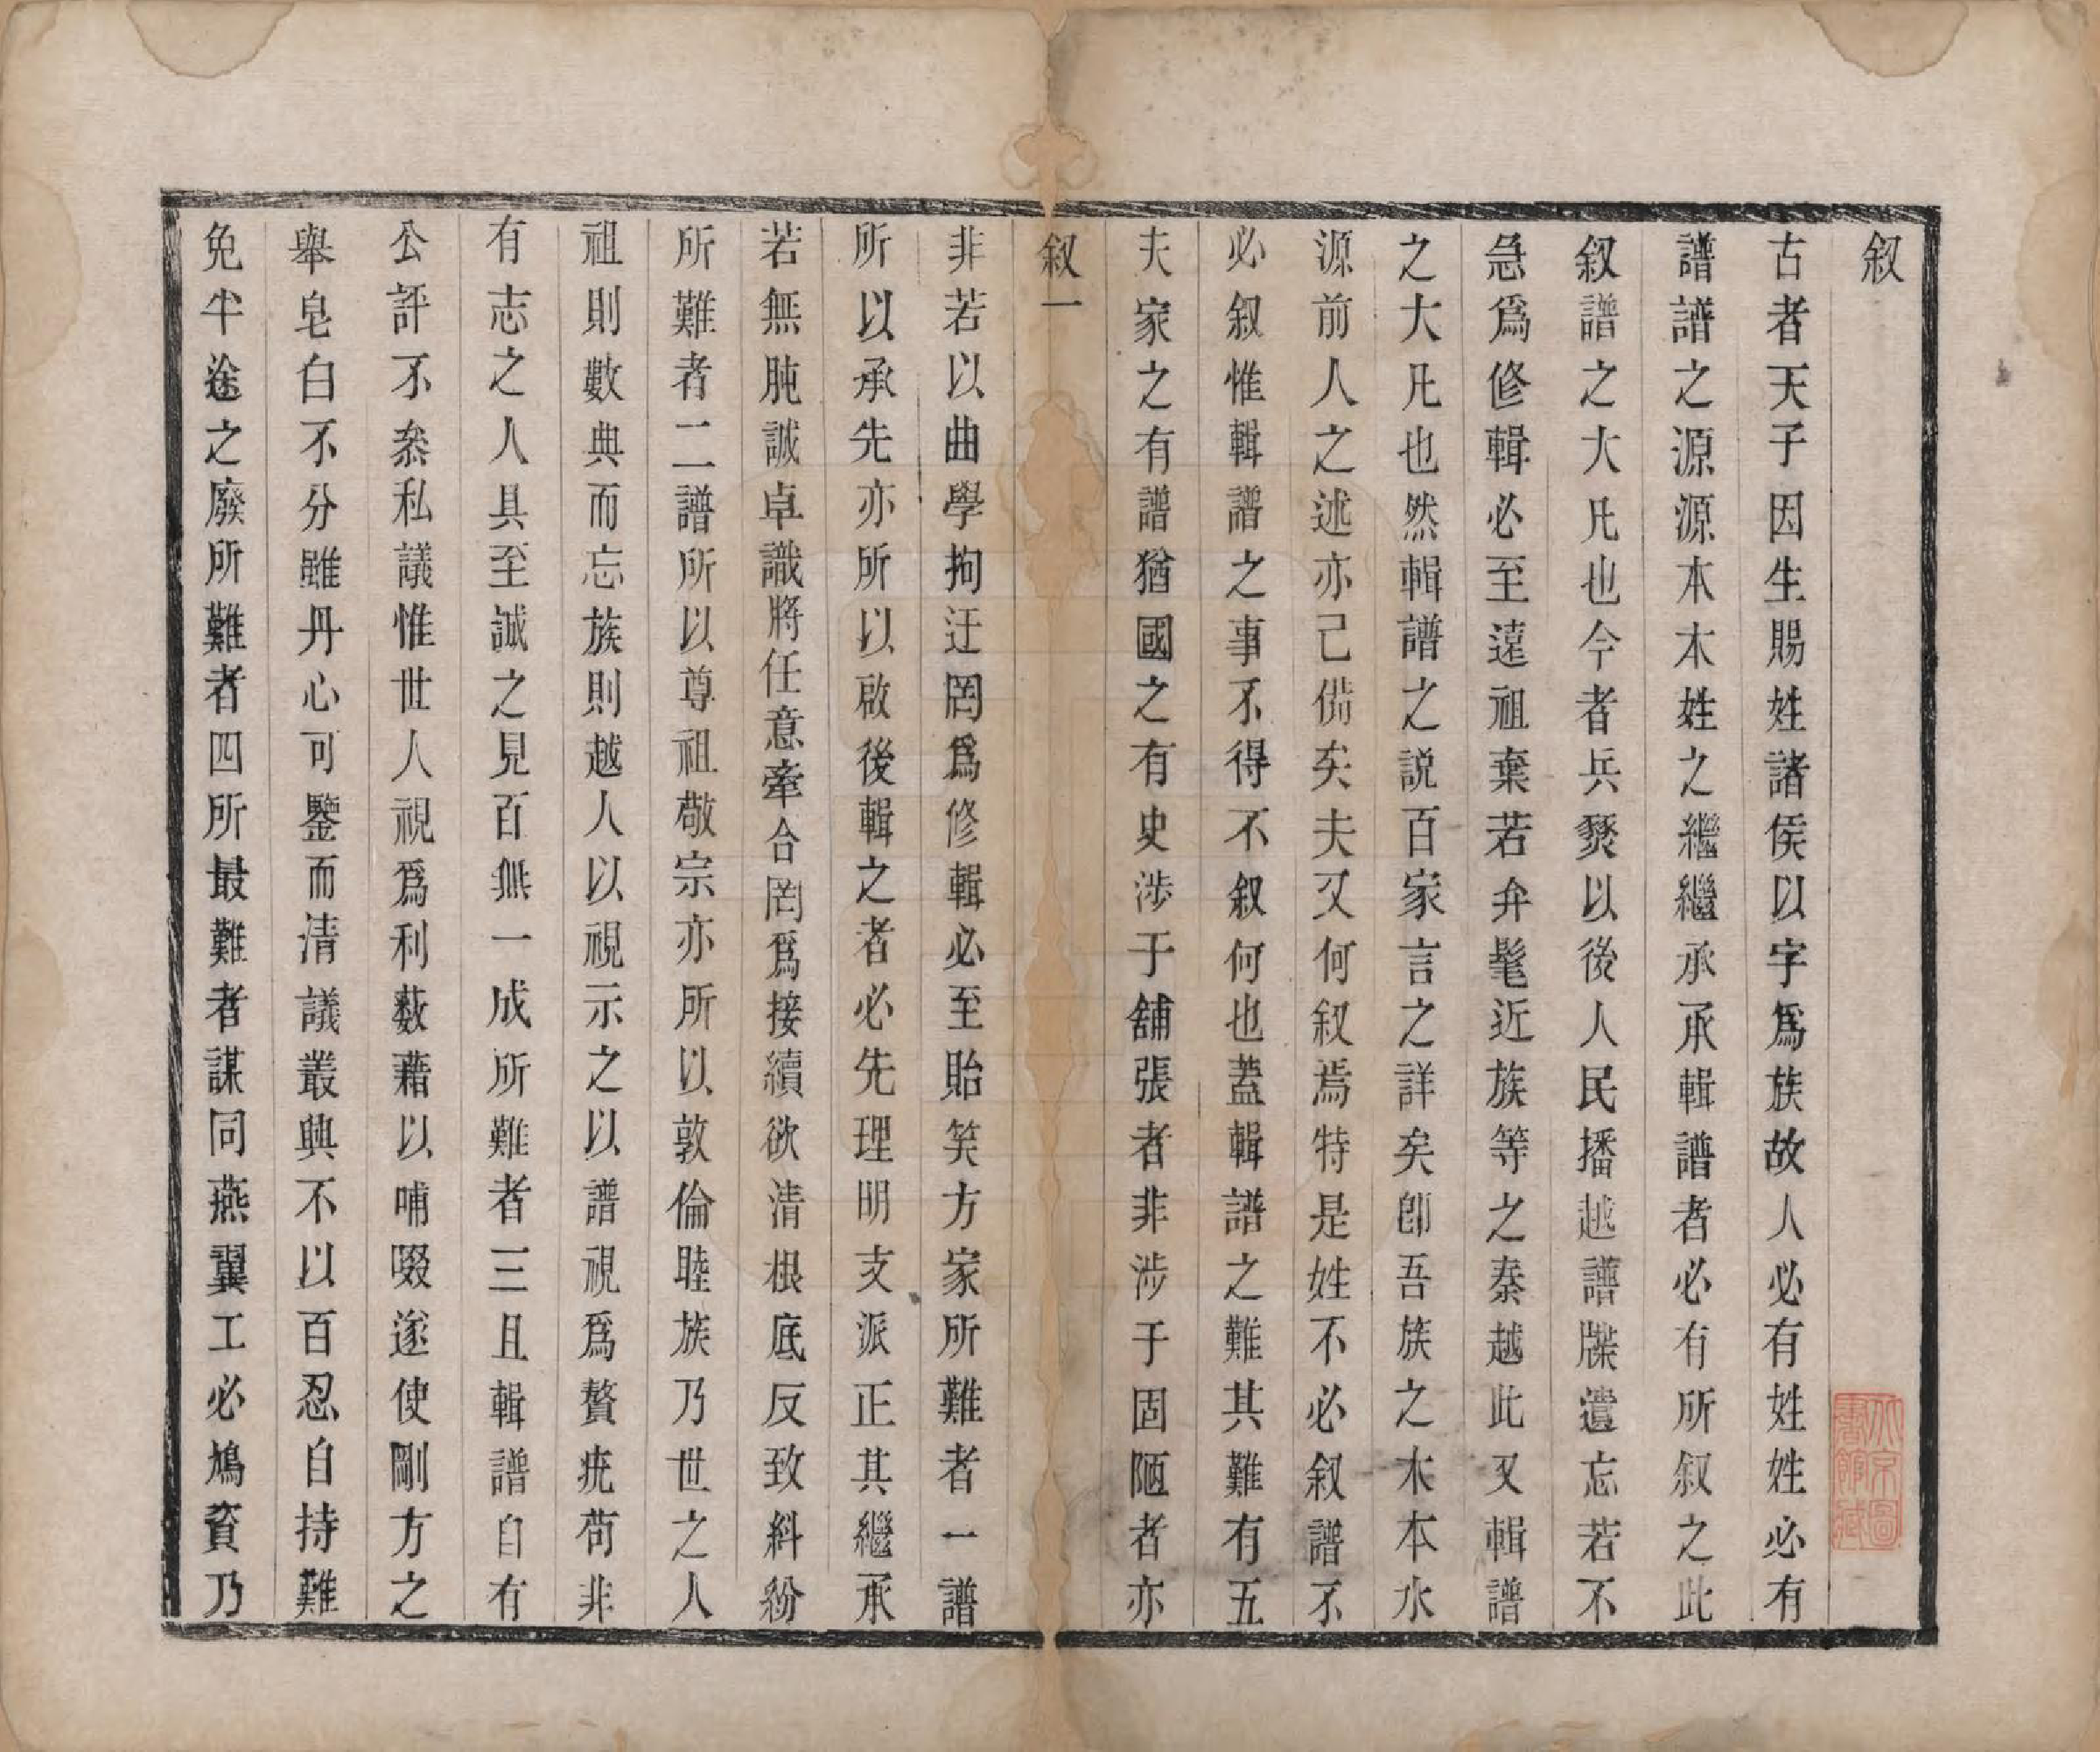 叙
古者天子因生賜姓諸侯以字爲族故人必有姓姓必有
譜譜之源源本木姓之繼繼承承輯譜者必有所叙之此
叙譜之大凡也今者兵燹以後人民播越譜牒遺忘若不
急爲修輯必至遠祖棄若弁髦近族等之秦越此又輯譜
之大凡也然輯譜之説百家言之詳矣卽吾族之木本水
源前人之述亦己備矣夫又何叙焉特是姓不必叙譜不
必叙惟輯譜之事不得不叙何也蓋輯譜之難其難有五
夫家之有譜猶國之有史涉于舖張者非涉于固陋者亦
叙一
非若以曲學拘迂罔爲修輯必至貽笑方家所難者一譜
所以承先亦所以啟後輯之者必先理明支派正其繼承
若無肫誠卓識將任意牽合罔爲接續欲清根底反致糾紛
所難者二譜所以尊祖敬宗亦所以敦倫睦族乃世之人
祖則數典而忘族則越人以視示之以譜視爲贅疣茍非
有志之人具至誠之見百無一成所難者三且輯譜自有
公評不叅私議惟世人視爲利藪藉以哺啜遂使剛方之
舉皂白不分雖丹心可鑒而清議叢興不以百忍自持難
免半途之廢所難者四所最難者謀同燕翼工必鳩資乃